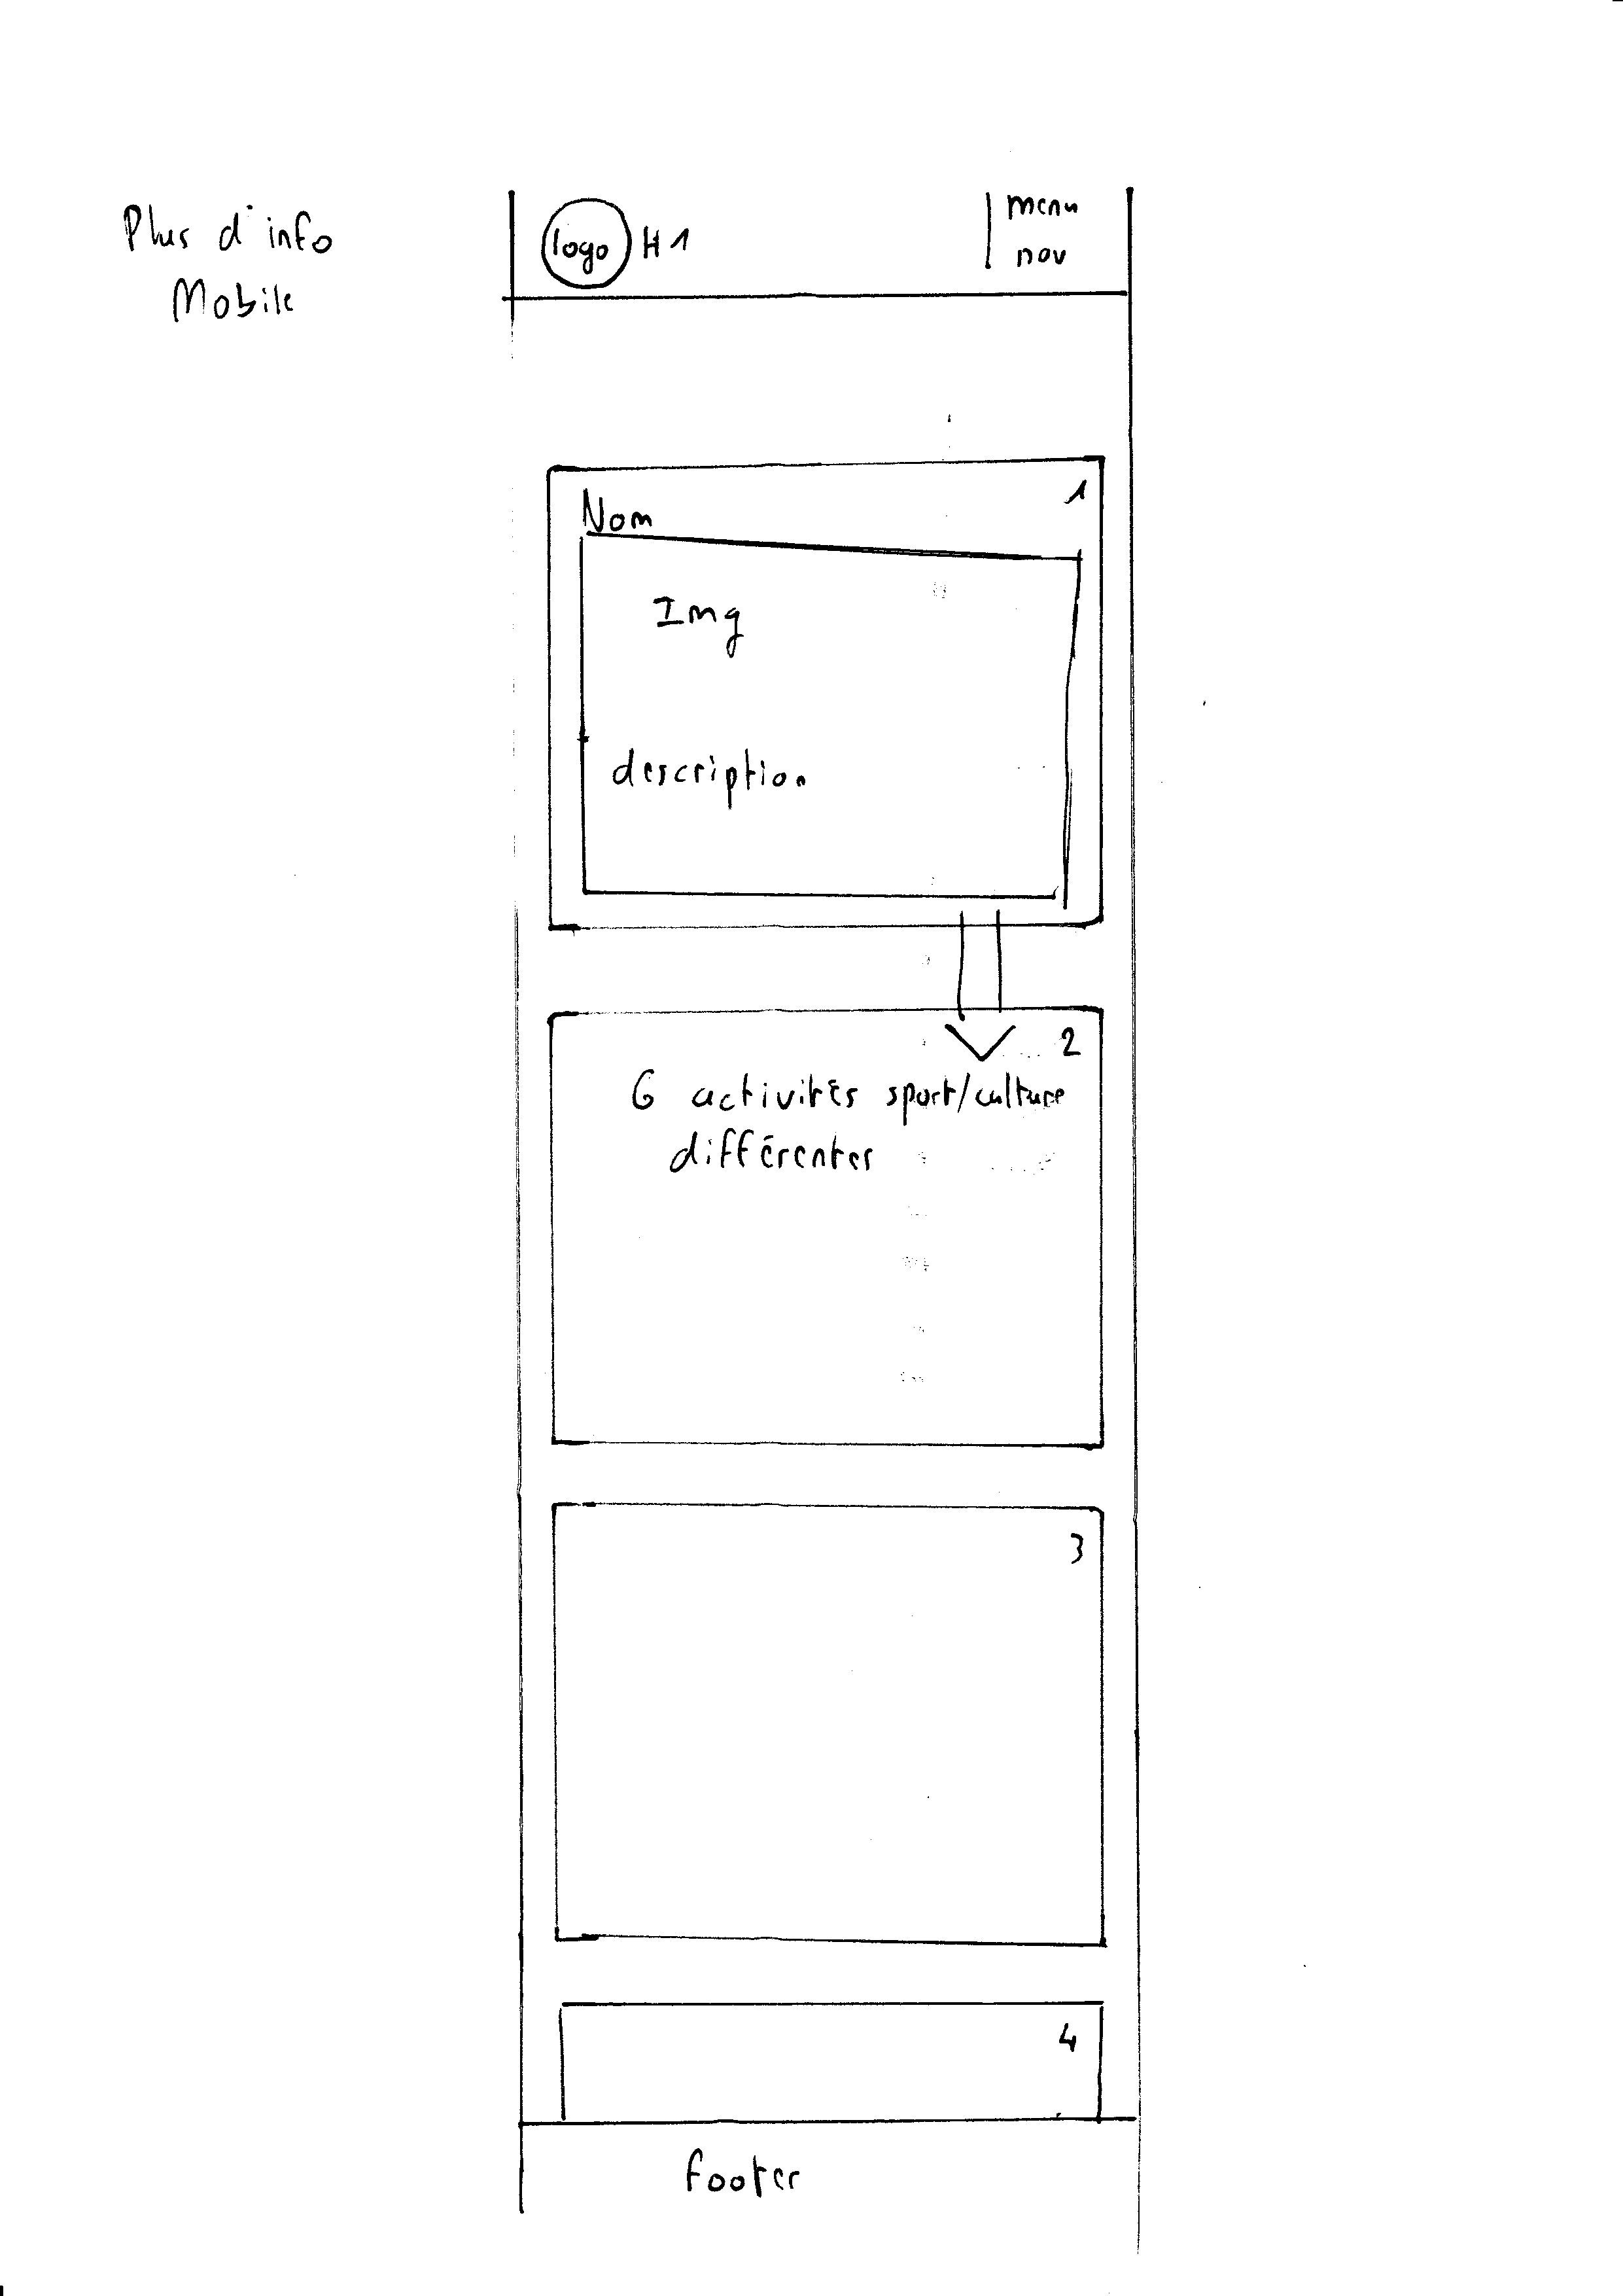 Plus d'info
Mobile
logo
H1
menu
nav
1
Nom
Img
description
2
6 activités sport/culture
différentes
3
4
footer